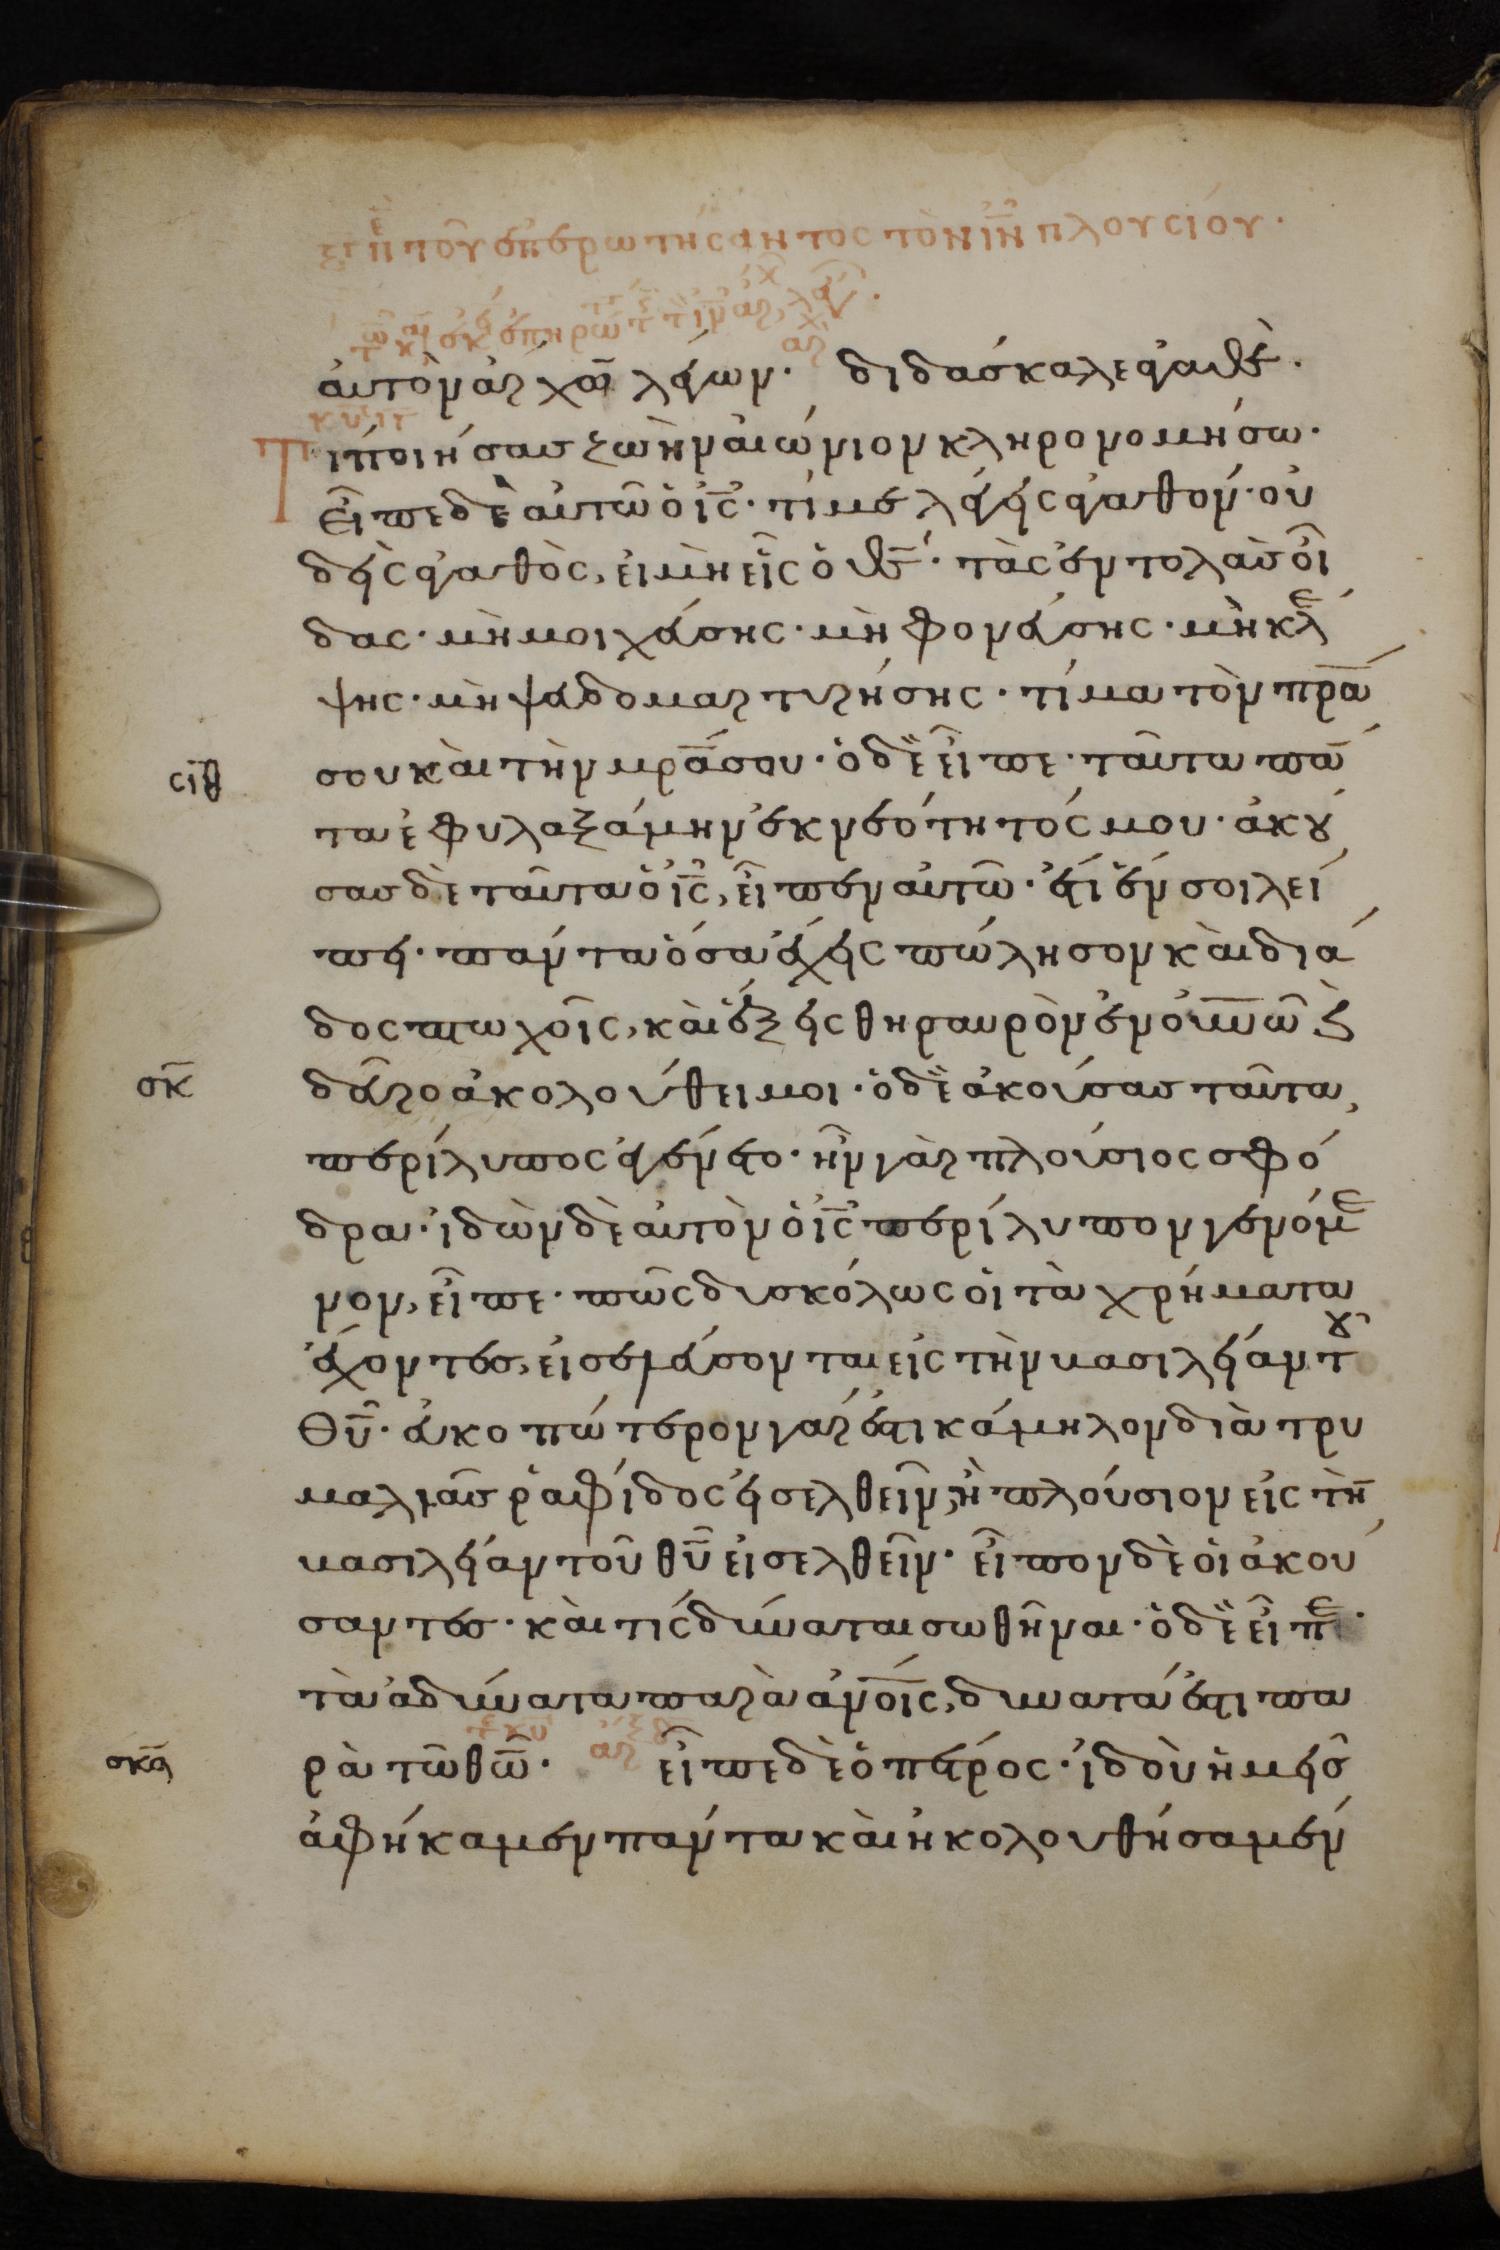 περὶ τοῦ ἐπερωτήσαντος τὸν ἰν πλουσίου·
τῶ κ ἐκ ἐπηρώτ
αὐτὸν ἄρχων λέγων· διδάσκαλε ἀγαθὲ·
Τί ποιήσας ζωὴν αἰώνιον κληρονομήσω·
εἶπε δὲ αὐτῶ ὁ ἰς· τί με λέγεις ἀγαθόν· οὐ
δεὶς ἀγαθὸς, εἰ μὴ εἷς ὁ θς· τὰς ἐντολὰς οἶ
δας· μὴ μοιχεύσης· μὴ φονεύσης· μὴ κλέ
ψης· μὴ ψευδομαρτυρήσης· τίμα τὸν πρα
σιθ σου καὶ τὴν μρα σου· ὁ δὲ εἶπε· ταῦτα πάν
τα ἐφυλαξάμην ἐκ νεότητός μου· ἀκού
σας δὲ ταῦτα ὁ ἰς, εἶπεν αὐτῶ· ἔτι ἕν σοι λεί
πει· πάντα ὅσα ἔχεις πώλησον καὶ διά
δος πτωχοῖς, καὶ ἕξεις θησαυρὸν ἐν οὐνῶ καὶ
σκ δεῦρο ἀκολούθει μοι· ὁ δὲ ἀκούσας ταῦτα,
περίλυπος ἐγένετο· ἦν γὰρ πλούσιος σφό
δρα· ἰδὼν δὲ αὐτὸν ὁ ἰς περίλυπον γενόμε
νον, εἶπε· πῶς δυσκόλως οἱ τὰ χρήματα
ἔχοντες, εἰσελεύσονται εἰς τὴν βασιλείαν τοῦ
θυ· εὐκοπώτερον γάρ ἐστι κάμηλον διὰ τρυ
μαλιᾶς ῥαφίδος εἰσελθεῖν, ἢ πλούσιον εἰς τὴν
βασιλείαν τοῦ θυ εἰσελθεῖν· εἶπον δὲ οἱ ἀκού
σαντες· καὶ τίς δύναται σωθῆναι· ὁ δὲ εἶπε·
τὰ ἀδύνατα παρὰ ἀνοις, δυνατά ἐστι πα
σκα ρὰ τῶ θω· εἶπε δὲ ὁ πέτρος· ἰδοὺ ἡμεῖς
ἀφήκαμεν πάντα καὶ ἠκολουθήσαμέν